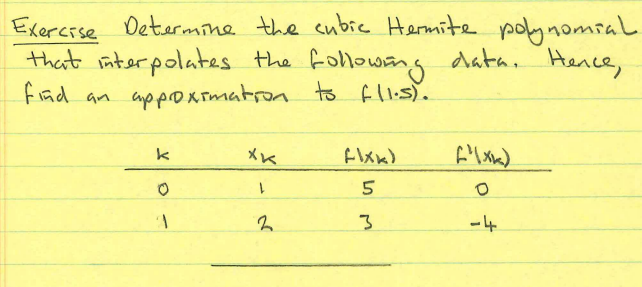 Exercise Determine the cubic Hermite polynomial
that interpolates the following data. Hence,
find an approximation to f(1.5).
k xk f(xk) f'(xk)
0 1 5 0
1 2 3 -4